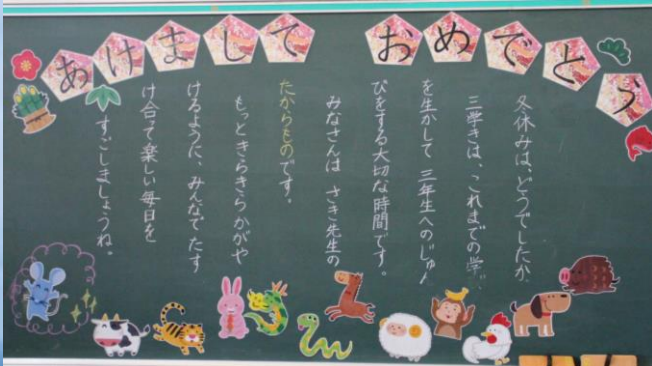 あけまして おめでとう
冬休みは、どうでしたか。
三学きは、これまでの学び
を生かして 三年生へのじゅん
びをする大切な時間です。
みなさんは さき先生の
たからものです。
もっときらきらかがや
けるように、みんなでたす
け合って楽しい毎日を
すごしましょうね。